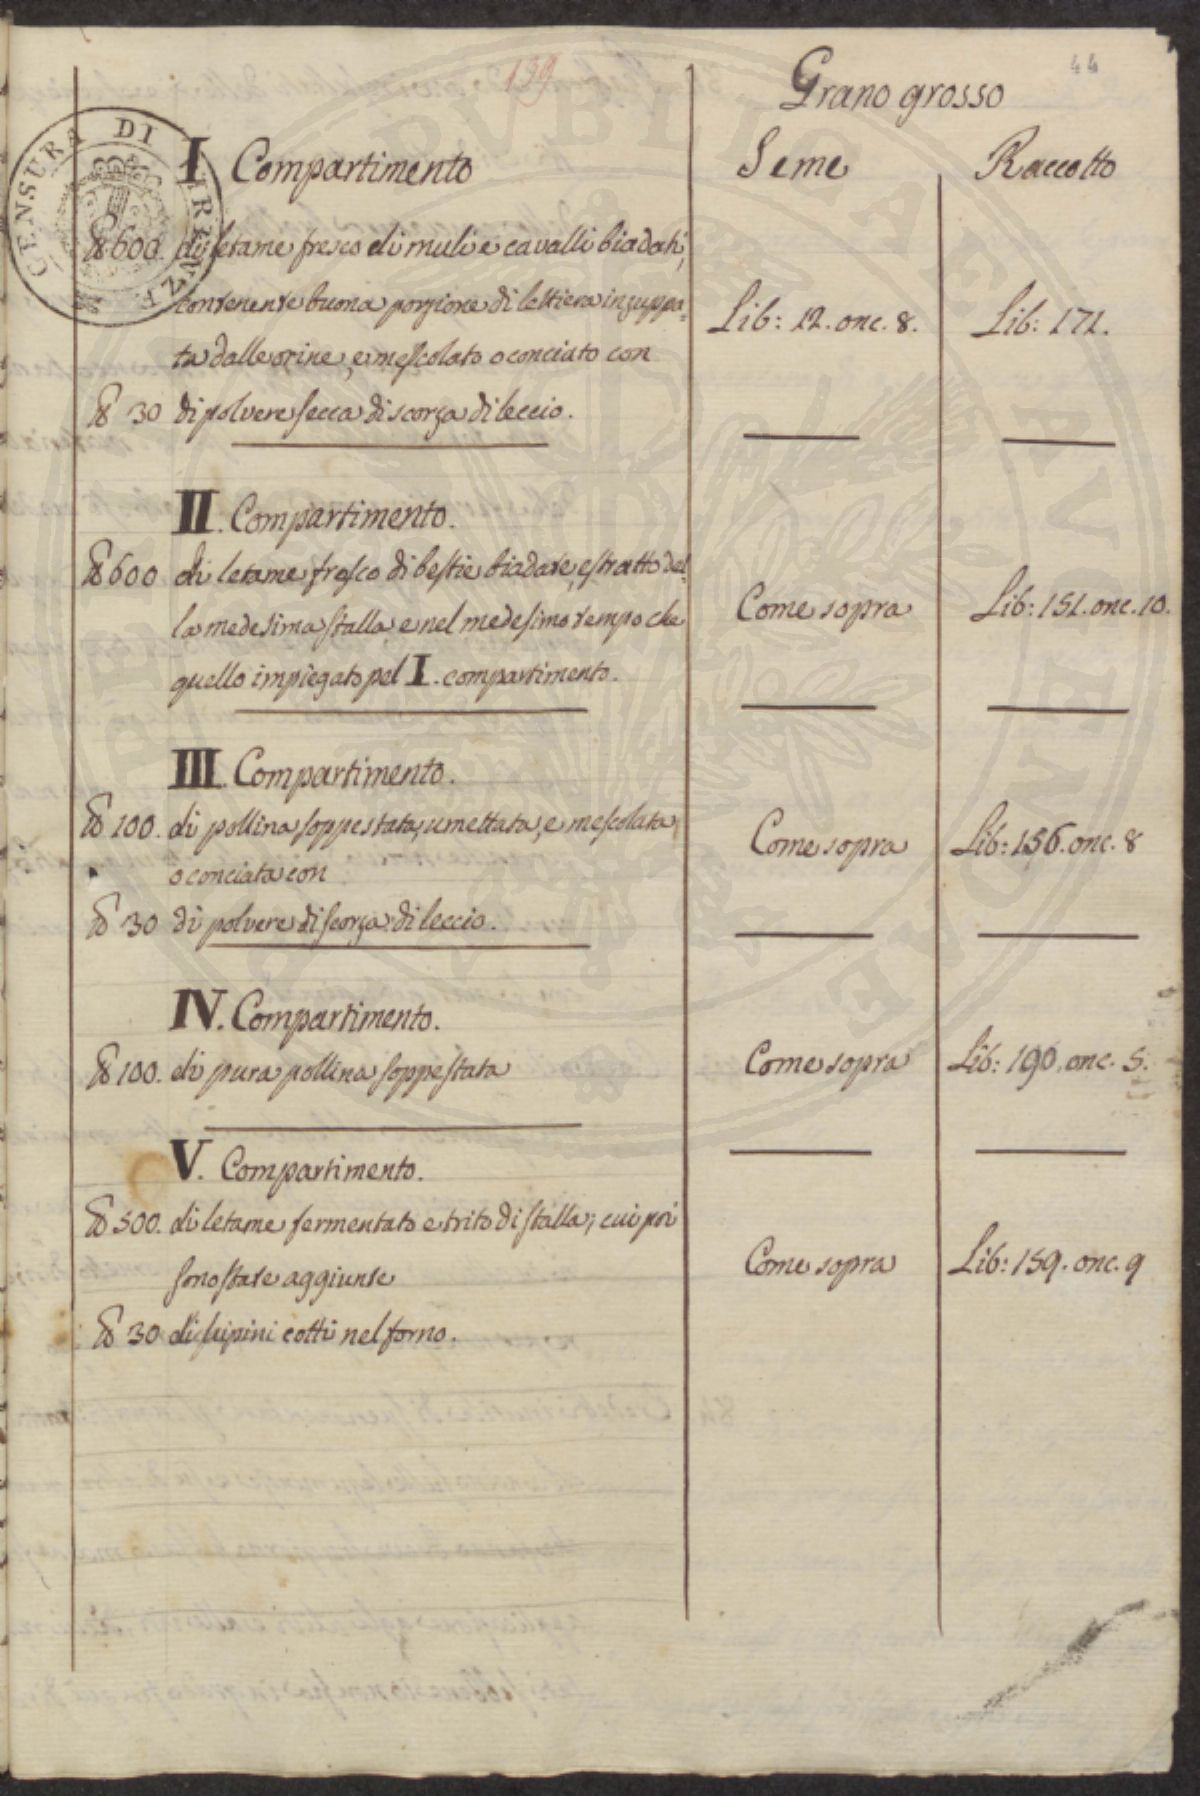 139
44
Grano grosso
Seme
Raccotto
CENSURA DI FIRENZE
I Compartimento
℔ 600. di letame fresco di muli e cavalli biadati,
contenente buona porzione di lettiera inzuppa=
ta dalle orine, e mescolato o conciato con
℔ 30 di polvere secca di scorza di leccio.
Lib: 12. onc. 8.
Lib: 171.
II. Compartimento.
℔ 600 di letame fresco di bestie biadate, estratto del=
la medesima stalla, e nel medesimo tempo che
quello impiegato pel I. compartimento.
Come sopra
Lib: 151. onc. 10.
III. Compartimento.
℔ 100. di pollina soppestata, umettata, e mescolata,
o conciata con
℔ 30 di polvere di scorza di leccio.
Come sopra
Lib: 156. onc. 8
IV. Compartimento.
℔ 100. di pura pollina soppestata
Come sopra
Lib: 190. onc. 5.
V. Compartimento.
℔ 500. di letame fermentato e trito di stalla; cui poi
sono state aggiunte
℔ 30 di lupini cotti nel forno.
Come sopra
Lib: 159. onc. 9